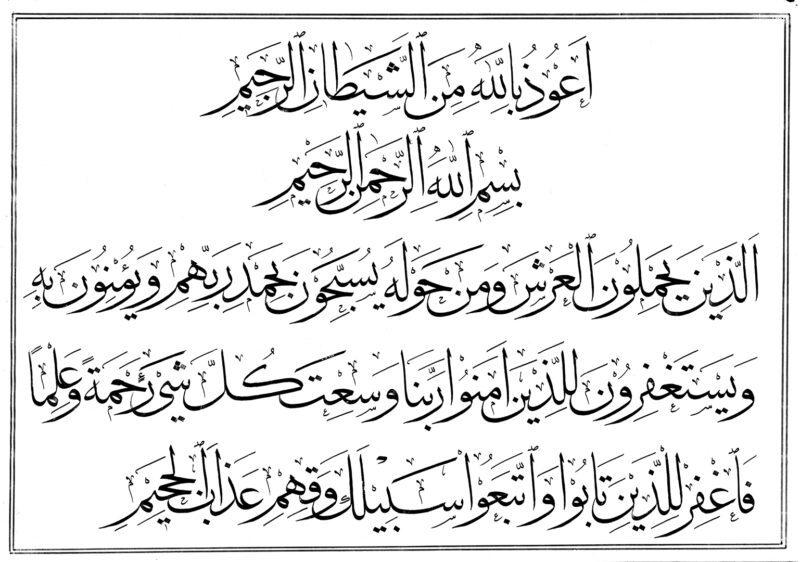 اَعُوذُ بِاللّٰهِ مِنَ ٱلشَّيْطَانِ ٱلرَّجِيمِ
بِسْمِ ٱللّٰهِ ٱلرَّحْمٰنِ ٱلرَّحِيمِ
اَلَّذِينَ يَحْمِلُونَ ٱلْعَرْشَ وَمَنْ حَوْلَهُ يُسَبِّحُونَ بِحَمْدِ رَبِّهِمْ وَيُؤْمِنُونَ بِهِ
وَيَسْتَغْفِرُونَ لِلَّذِينَ اٰمَنُوا رَبَّنَا وَسِعْتَ كُلَّ شَيْءٍ رَحْمَةً وَعِلْمًا
فَٱغْفِرْ لِلَّذِينَ تَابُوا وَٱتَّبَعُوا سَبِيلَكَ وَقِهِمْ عَذَابَ ٱلْجَحِيمِ